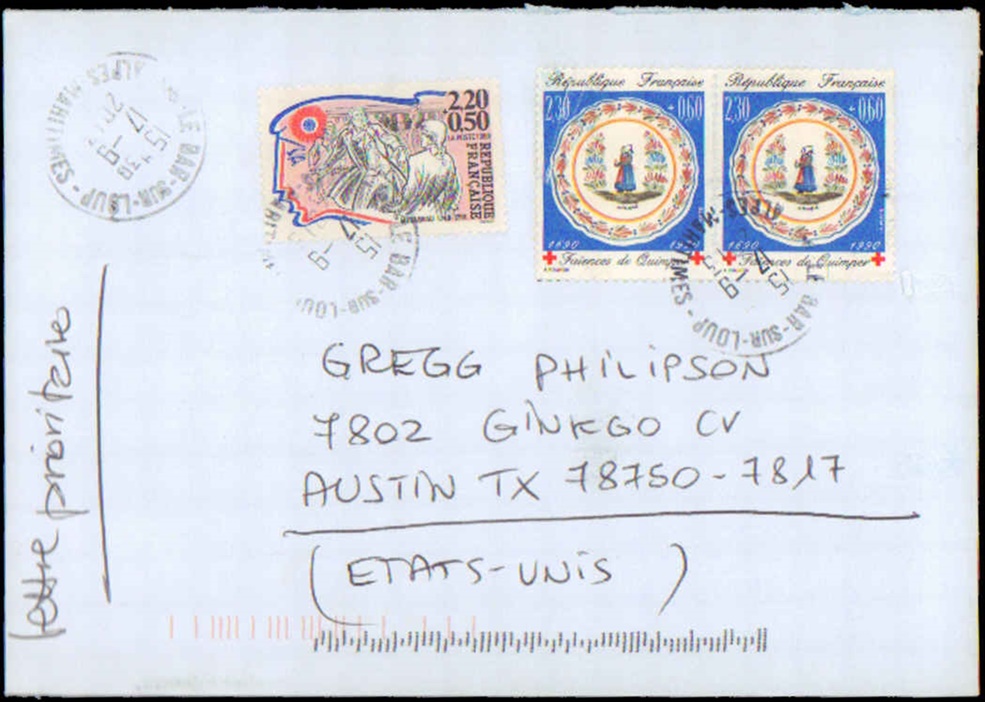 LE BAR-SUR-LOUP
ALPES-MARITIMES
2.20
+0.50
LA POSTE 1989
REPUBLIQUE
FRANÇAISE
LE BAR-SUR-LOUP
République Française
2,30 +0,60
1690 1990
Faïences de Quimper
République Française
2,30 +0,60
1690 1990
Faïences de Quimper
BAR-SUR-LOUP
ALPES-MARITIMES
GREGG PHILIPSON
7802 GINKGO CV
AUSTIN TX 78750-7817
(ETATS-UNIS)
lettre prioritaire